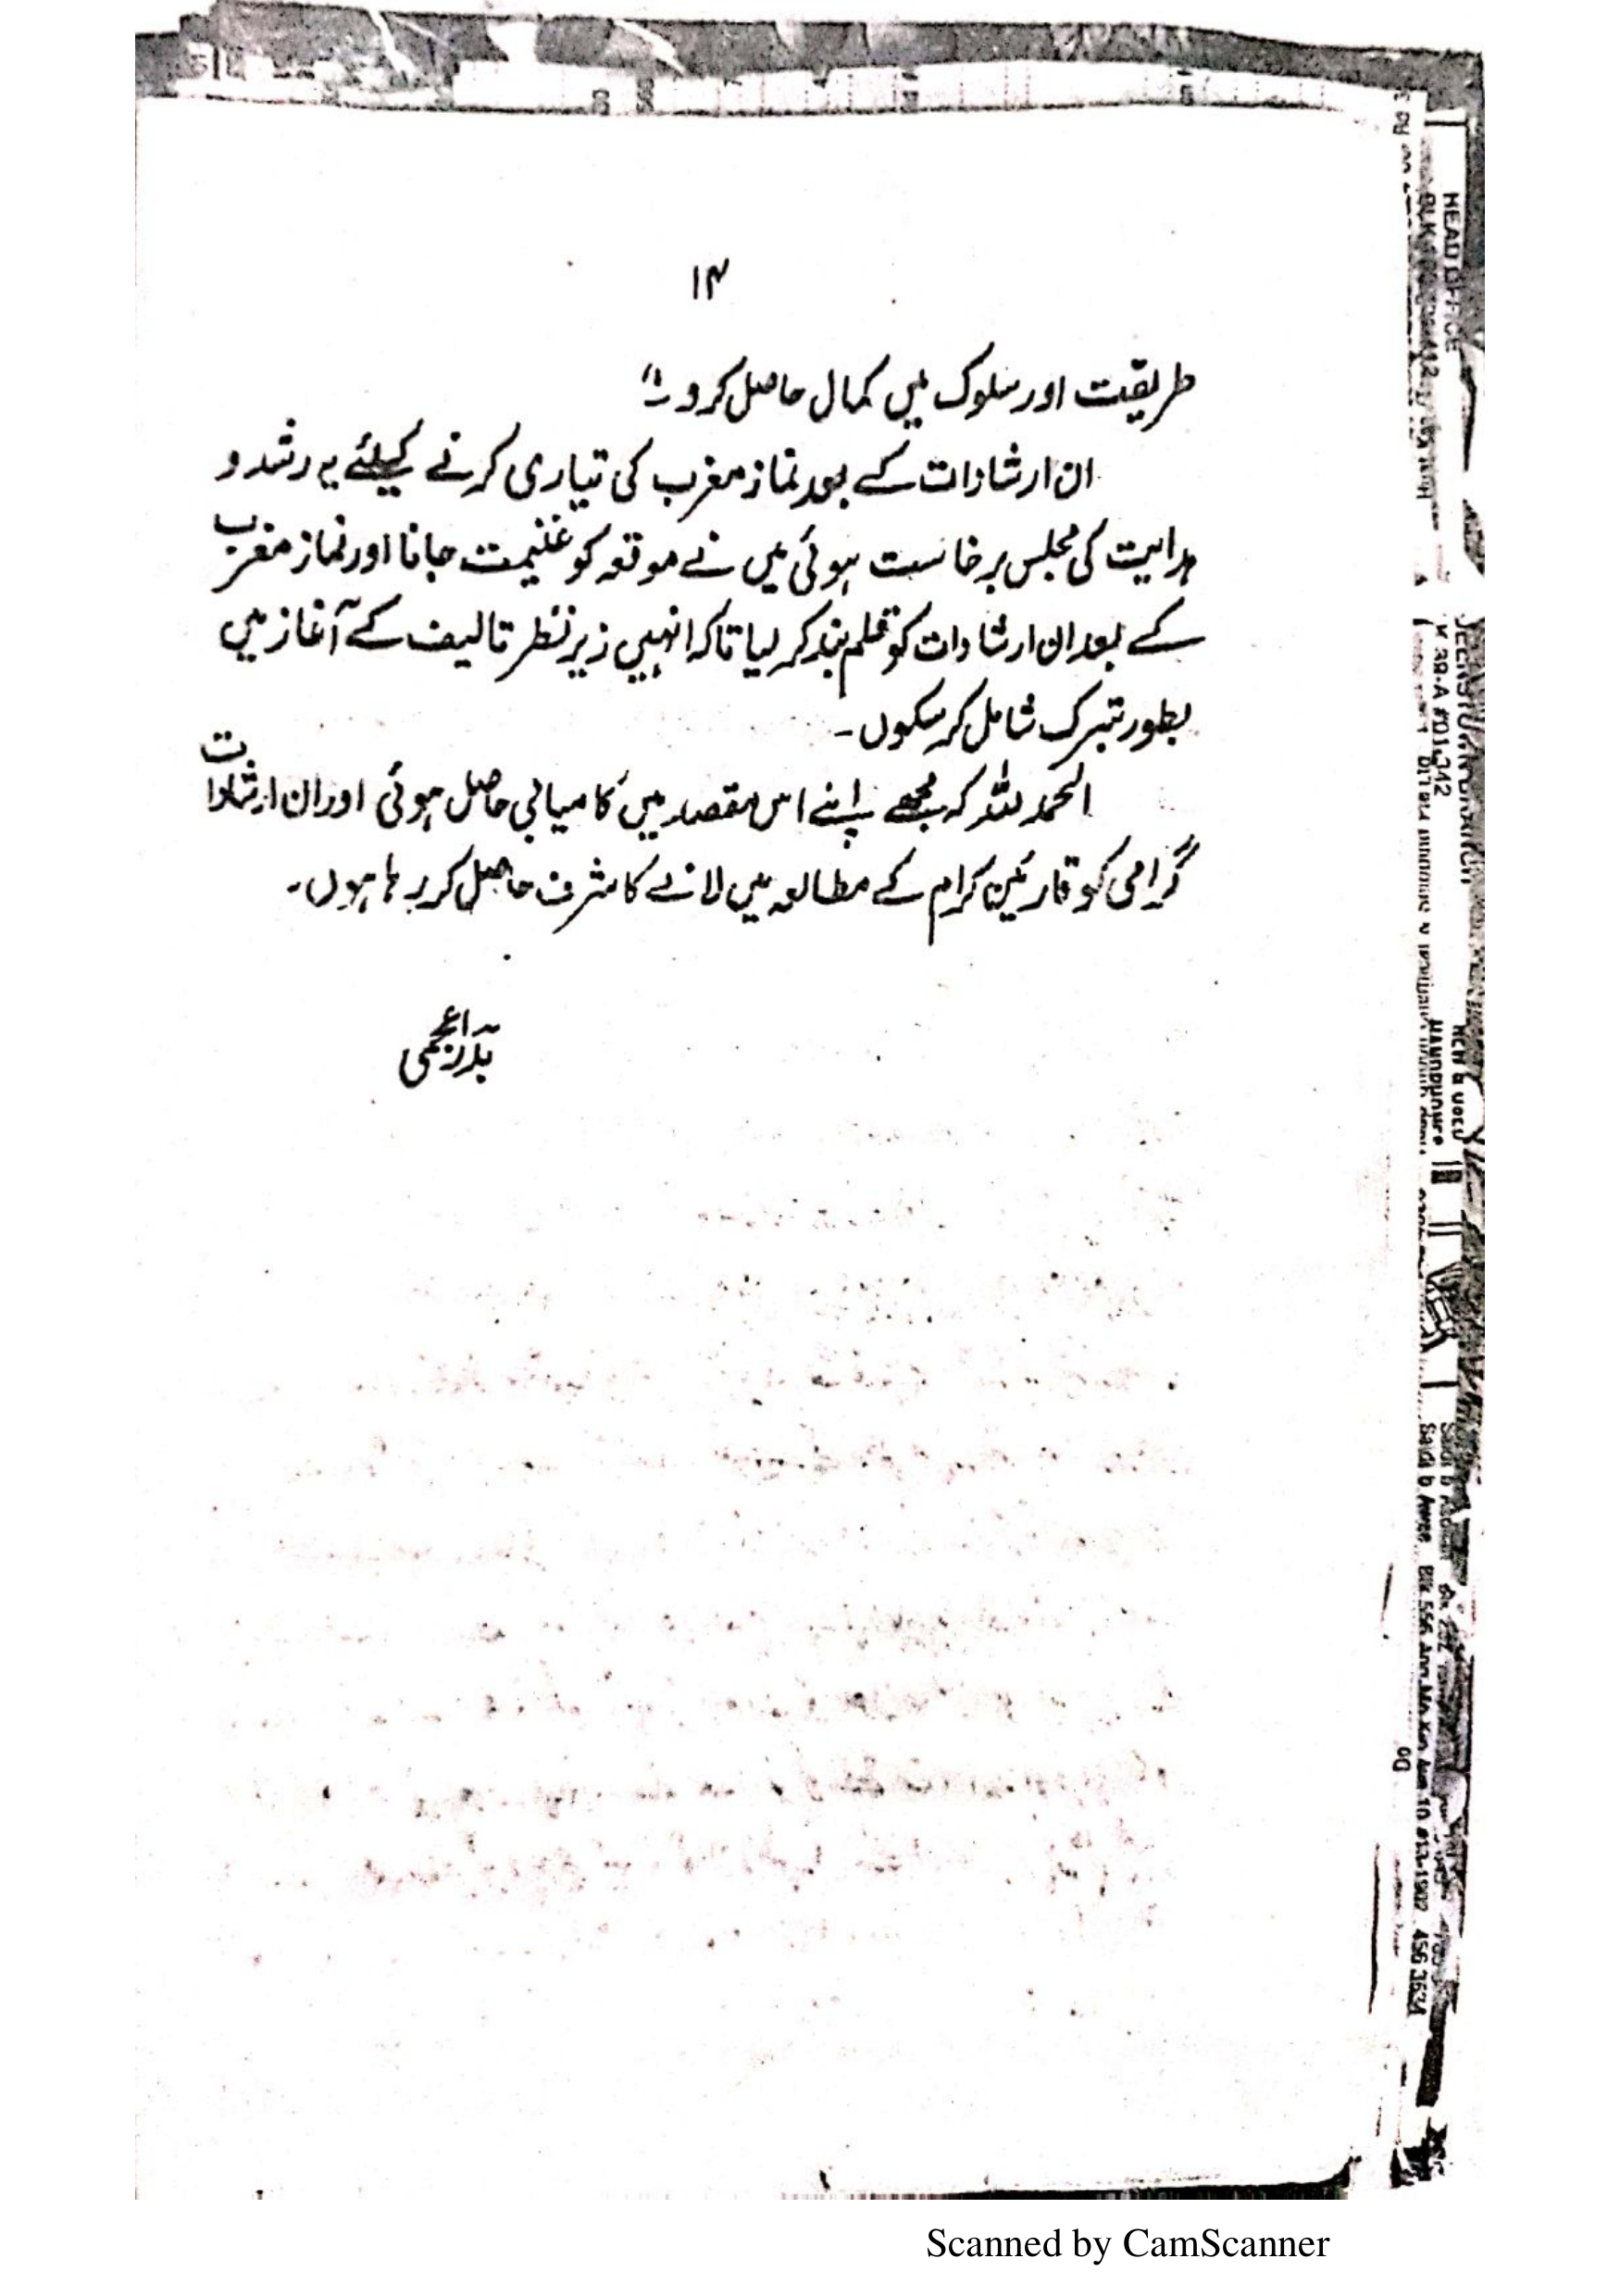 ۱۴
طریقت اور سلوک میں کمال حاصل کرو۔"
ان ارشادات کے بعد نماز مغرب کی تیاری کرنے کیلئے یہ رشد و
ہدایت کی مجلس برخاست ہوئی میں نے موقعہ کو غنیمت جانا اور نماز مغرب
کے بعد ان ارشادات کو قلم بند کر لیا تاکہ انہیں زیر نظر تالیف کے آغاز میں
بطور تبرک شامل کر سکوں۔
الحمد للہ کہ مجھے اپنے اس مقصد میں کامیابی حاصل ہوئی اور ان ارشادات
گرامی کو قارئین کرام کے مطالعہ میں لانے کا شرف حاصل کر رہا ہوں۔
بدر اعجمی
HEAD OFFICE
Blk 556 Ang Mo Kio Ave 10 #13-1902 456 3634
Scanned by CamScanner